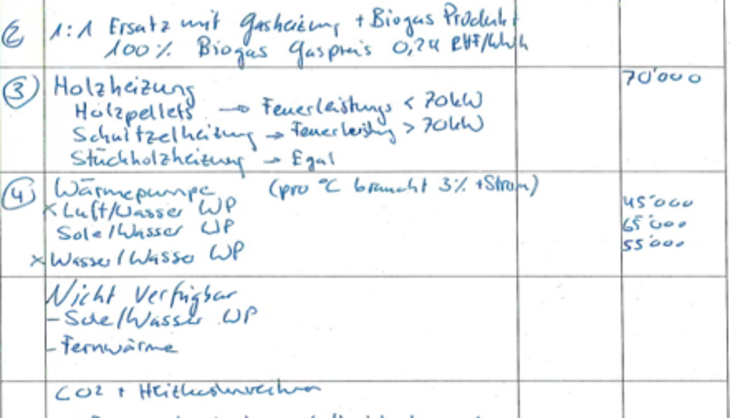 ② 1:1 Ersatz mit Gasheizung + Biogas Produkt
100% Biogas Gaspreis 0,24 CHF/kWh
③ Holzheizung 70'000
Holzpellets → Feuerleistungs < 70kW
Schnitzelheizung → Feuerleistung > 70kW
Stückholzheizung → Egal
④ Wärmepumpe (pro °C braucht 3% + Strom)
x Luft/Wasser WP 45'000
Sole/Wasser WP 65'000
x Wasser/Wasser WP 55'000
Nicht Verfügbar
- Sole/Wasser WP
- Fernwärme
CO2 +